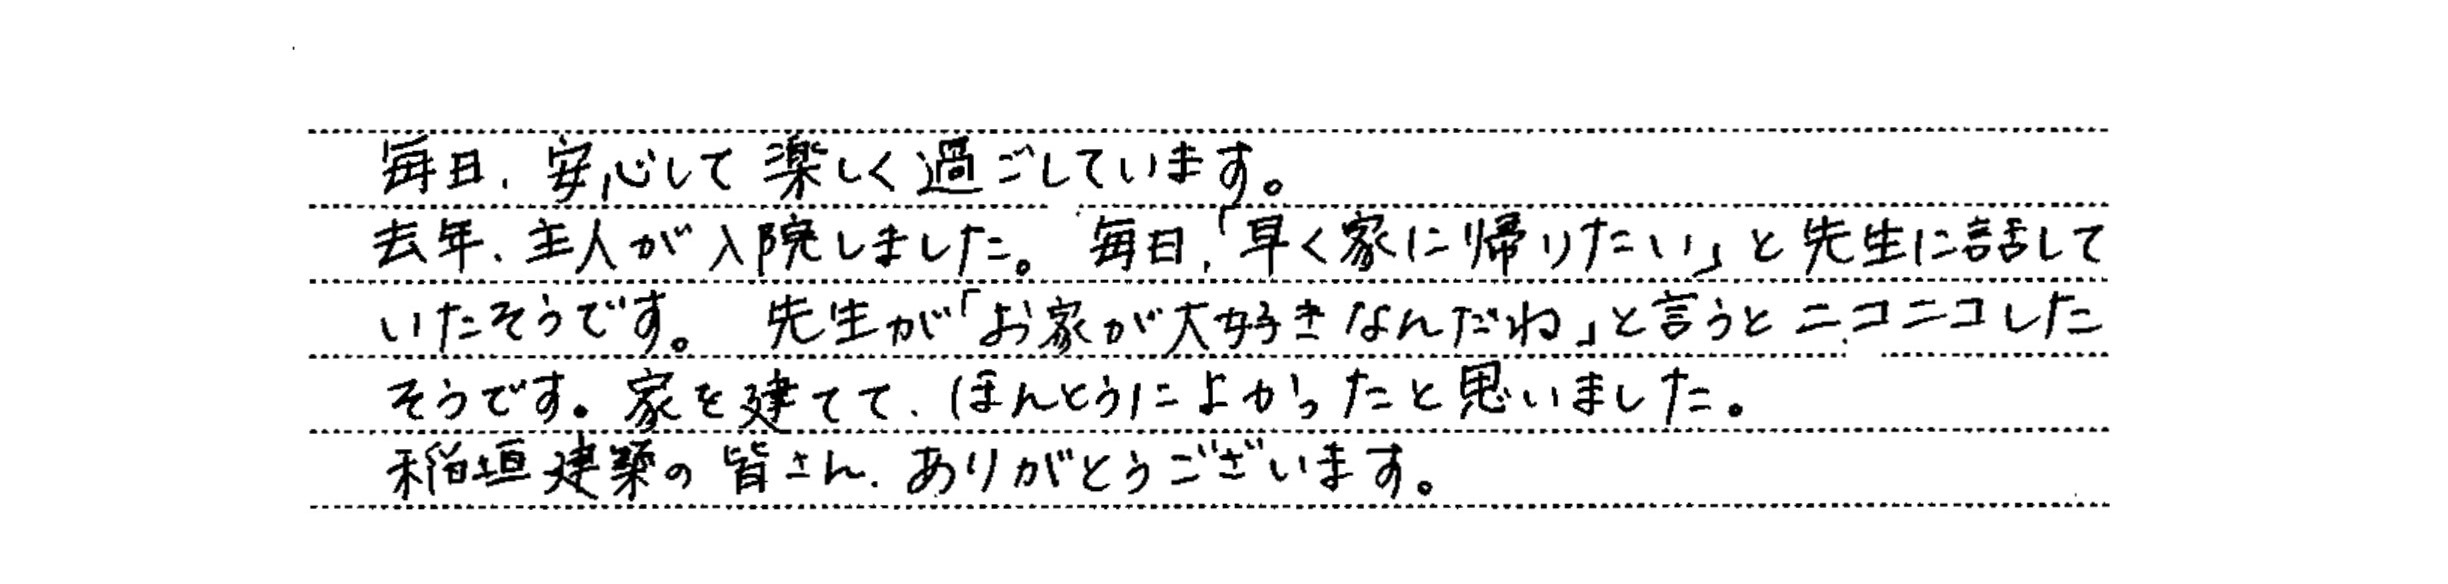 毎日、安心して楽しく過ごしています。
去年、主人が入院しました。毎日、「早く家に帰りたい」と先生に話して
いたそうです。先生が「お家が大好きなんだね」と言うとニコニコした
そうです。家を建てて、ほんとうによかったと思いました。
稲垣建築の皆さん、ありがとうございます。